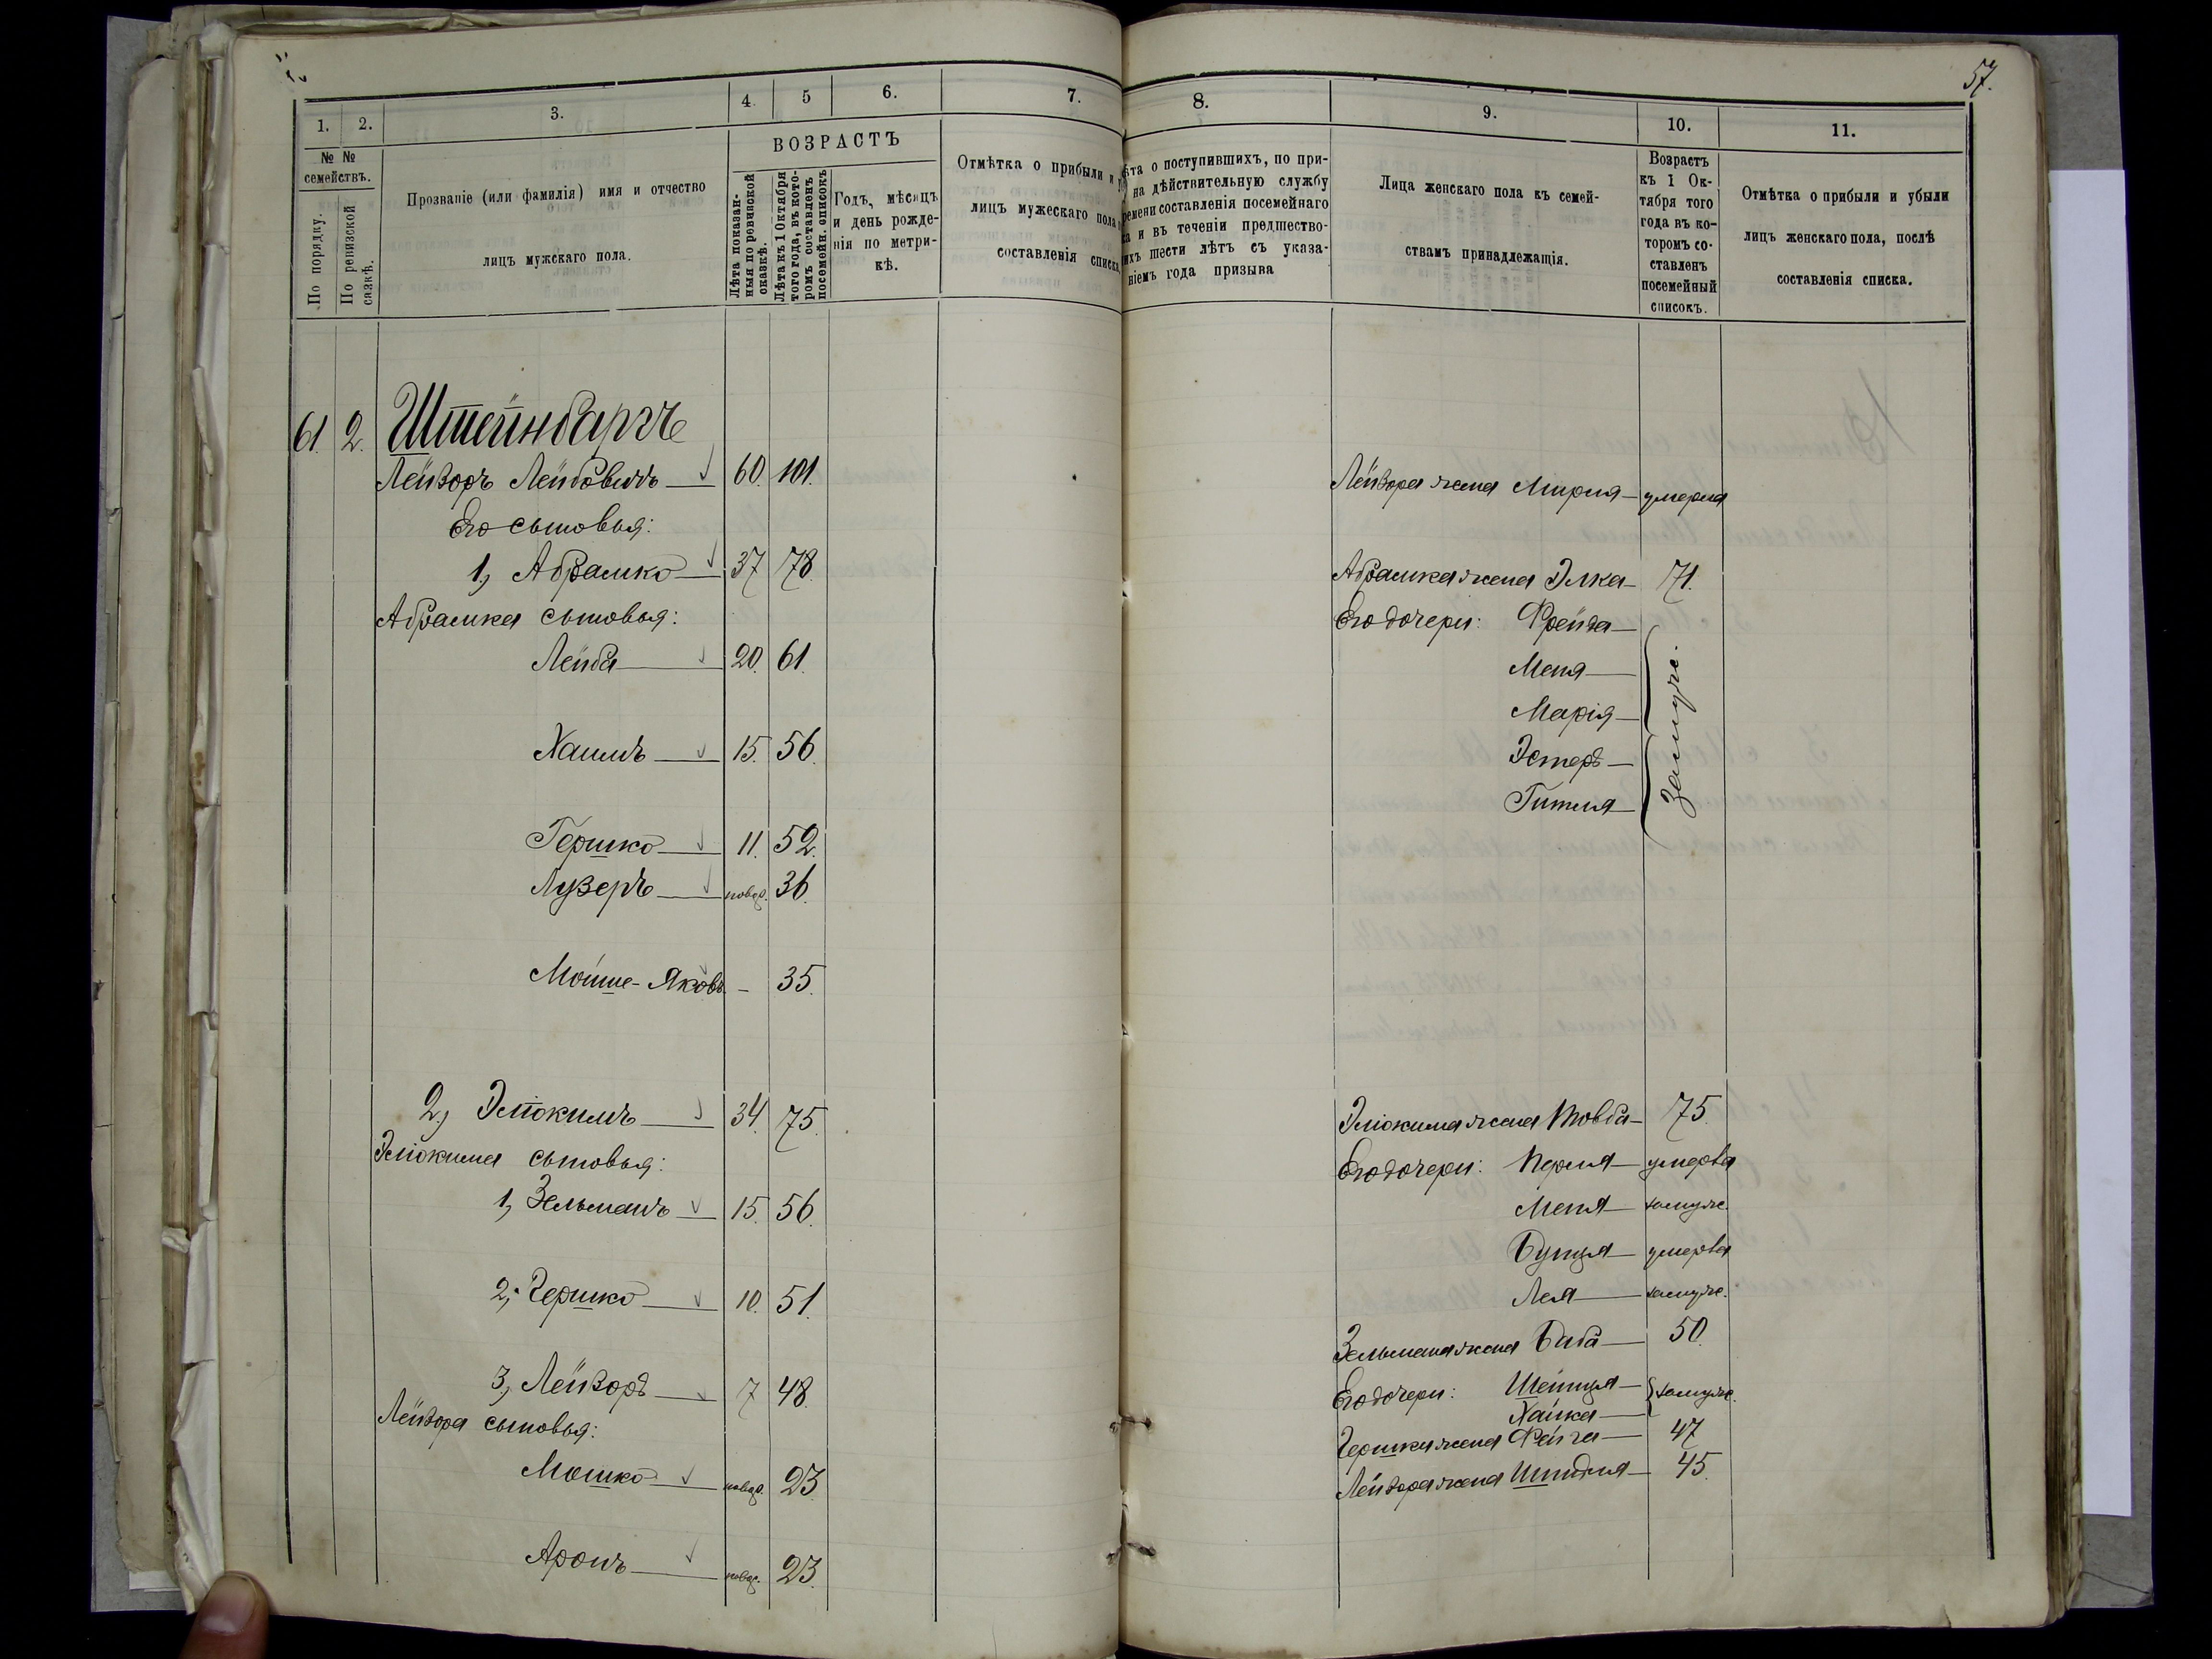 57.
1.
2.
3.
4.
5
6.
7.
№ №
семействъ.
По порядку.
По ревизской
сазкѣ.
Прозваніе (или фамилія) имя и отчество
лицъ мужскаго пола.
ВОЗРАСТЪ
Лѣта показан-
ныя по ревизской
сказкѣ.
Лѣта къ 1 Октября
того года, въ кото-
ромъ составленъ
посемейн. списокъ
Годъ, мѣсяцъ
и день рожде-
нія по метри-
кѣ.
Отмѣтка о прибыли и
лицъ мужескаго пола
составленія списка
61. 2. Штейнбаргъ
Лейзоръ Лейбовичъ 60. 101.
Его сыновья:
1, Абрамко 37 78.
Абрамка сыновья:
Лейба 20. 61.
Хаимъ 15. 56.
Гершко 11. 52.
Лузеръ новор. 36.
Мойше-Яковъ - 35.
2, Элюкимъ 34. 75.
Элюкима сыновья:
1, Зельманъ 15. 56.
2, Гершко 10. 51.
3, Лейзоръ 7 48.
Лейзора сыновья:
Мошко новор. 23.
Аронъ новор. 23.
8.
9.
10.
11.
та о поступившихъ, по при-
на дѣйствительную службу
ремени составленія посемейнаго
ка и въ теченіи предшество-
ихъ шести лѣтъ съ указа-
ніемъ года призыва
Лица женскаго пола къ семей-
ствамъ принадлежащія.
Возрастъ
къ 1 Ок-
тября того
года въ ко-
торомъ со-
ставленъ
посемейный
списокъ.
Отмѣтка о прибыли и убыли
лицъ женскаго пола, послѣ
составленія списка.
Лейзора жена Мирля умерла
Абрамка жена Элка 71.
Его дочери: Фрейда
Меня
Марія
Эстеръ
Гитля
замуж.
Элюкима жена Товба 75.
Его дочери: Перля умерла
Меня замуж.
Бунця умерла
Лея замуж.
Зельмана жена Баба 50.
Его дочери: Шейнця замуж.
Хайка
Гершка жена Фейга 47
Лейзора жена Шиндля 45.